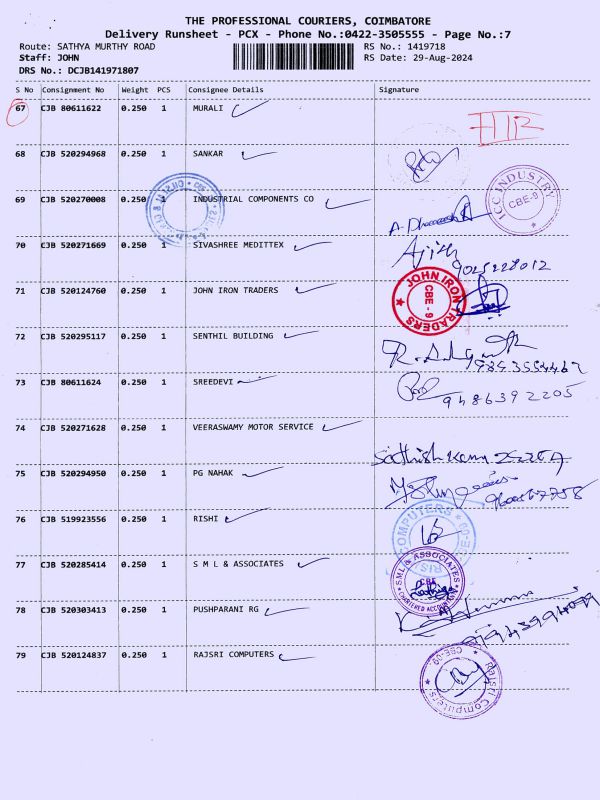 THE PROFESSIONAL COURIERS, COIMBATORE
Delivery Runsheet - PCX - Phone No.:0422-3505555 - Page No.:7
Route: SATHYA MURTHY ROAD RS No.: 1419718
Staff: JOHN RS Date: 29-Aug-2024
DRS No.: DCJB141971807
S No Consignment No Weight PCS Consignee Details Signature
67 CJB 80611622 0.250 1 MURALI
68 CJB 520294968 0.250 1 SANKAR
69 CJB 520270008 0.250 1 INDUSTRIAL COMPONENTS CO
ICC INDUSTRY CBE-9
70 CJB 520271669 0.250 1 SIVASHREE MEDITTEX Ajith
9025228012
71 CJB 520124760 0.250 1 JOHN IRON TRADERS
JOHN IRON TRADERS CBE-9
72 CJB 520295117 0.250 1 SENTHIL BUILDING
73 CJB 80611624 0.250 1 SREEDEVI
9486392205
74 CJB 520271628 0.250 1 VEERASWAMY MOTOR SERVICE
75 CJB 520294950 0.250 1 PG NAHAK
76 CJB 519923556 0.250 1 RISHI
COMPUTERS
77 CJB 520285414 0.250 1 S M L & ASSOCIATES
SML & ASSOCIATES CBE CHARTERED ACCOUNTANTS
78 CJB 520303413 0.250 1 PUSHPARANI RG
79 CJB 520124837 0.250 1 RAJSRI COMPUTERS
Rajsri Computers CBE-09